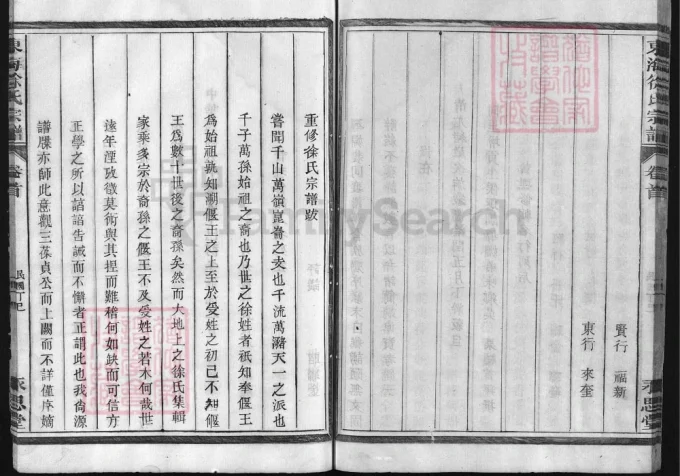 東海徐氏宗譜
卷首
民國丁巳
承思堂
賢行 福新
東行 來奎
重修徐氏宗譜跋
嘗聞千山萬嶺崑崙之支也千流萬瀦天一之派也
千子萬孫始祖之裔也乃世之徐姓者祇知奉偃王
為始祖孰知溯偃王之上至於受姓之初已不知偃
王為數十世後之裔孫矣然而大地上之徐氏集輯
家乘多宗於裔孫之偃王不及受姓之若木何哉世
遠年湮攷徵莫術與其捏而難稽何如缺而可信方
正學之所以諳諳告誡而不懈者正謂此也我倚源
譜牒亦師此意觀三葆貞公而上闕而不詳僅序嫡
東海徐氏宗譜
卷首
民國丁巳
承思堂
FamilySearch